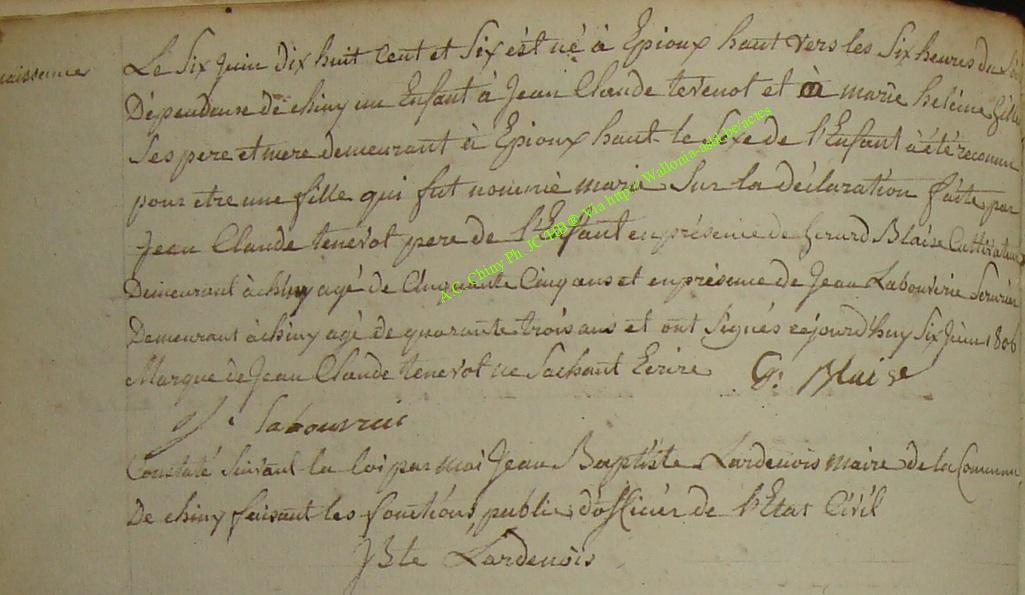 naissance
Le Six juin dix huit Cent et Six est né à Epioux haut vers les Six heures du
Dépendanse de chiny un Enfant à Jean Claude tevenot et à marie helene
Ses pere et mere demeurant à Epioux haut le Sexe de l'Enfant à été reconnu
pour etre une fille qui fut nommé marie Sur la déclaration faite par
Jean Claude tenevot pere de l'Enfant en présence de Gerard Blaise Cultivateur
Demeurant à chiny agé de Cinquante Cinq ans et en présence de Jean Labouverie
Demeurant à chiny agé de quarante trois ans et ont Signés cejourd'huy Six juin 1806
Marque de Jean Claude tenevot ne Sachant Ecrire G: Blaise
J: labouvrie
Constaté Suivant la loi par moi Jean Baptiste Lardenois maire de la Commune
De chiny faisant les fonctions public d'officier de l'Etat Civil
JBte Lardenois
A.G. Chiny Ph. JC /HB @ Via http// Wallonia-asbl.be/actes